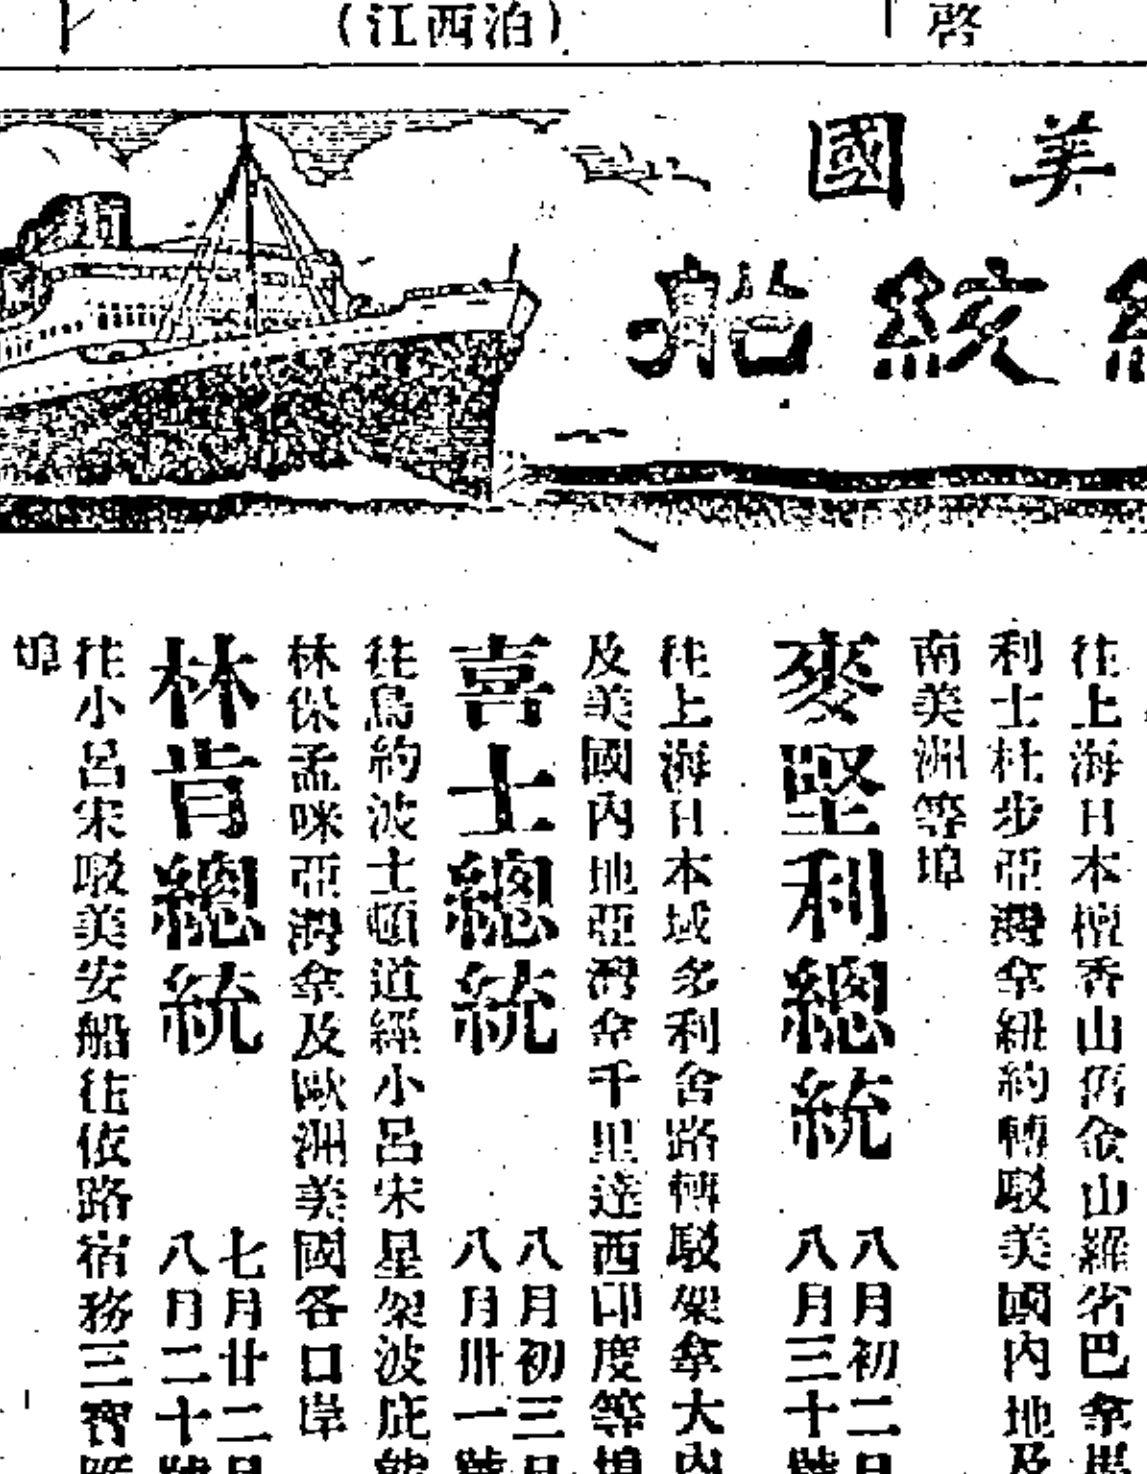 啓
(江西泊)
美國
絞船
往上海日本檀香山舊金山羅省巴拿馬
利士杜步亞灣拿紐約轉駁美國內地及
南美洲等埠
麥堅利總統
八月初二日
八月三十號
往上海日本域多利舍路轉駁架拿大內
及美國內地亞灣拿千里達西印度等埠
喜士總統
八月初三日
八月卅一號
往鳥約波士頓道經小呂宋星架波庇能
林保孟咪亞灣拿及歐洲美國各口岸
林肯總統
七月廿二日
八月二十號
往小呂宋駁美安船往依路宿務三寶
埠